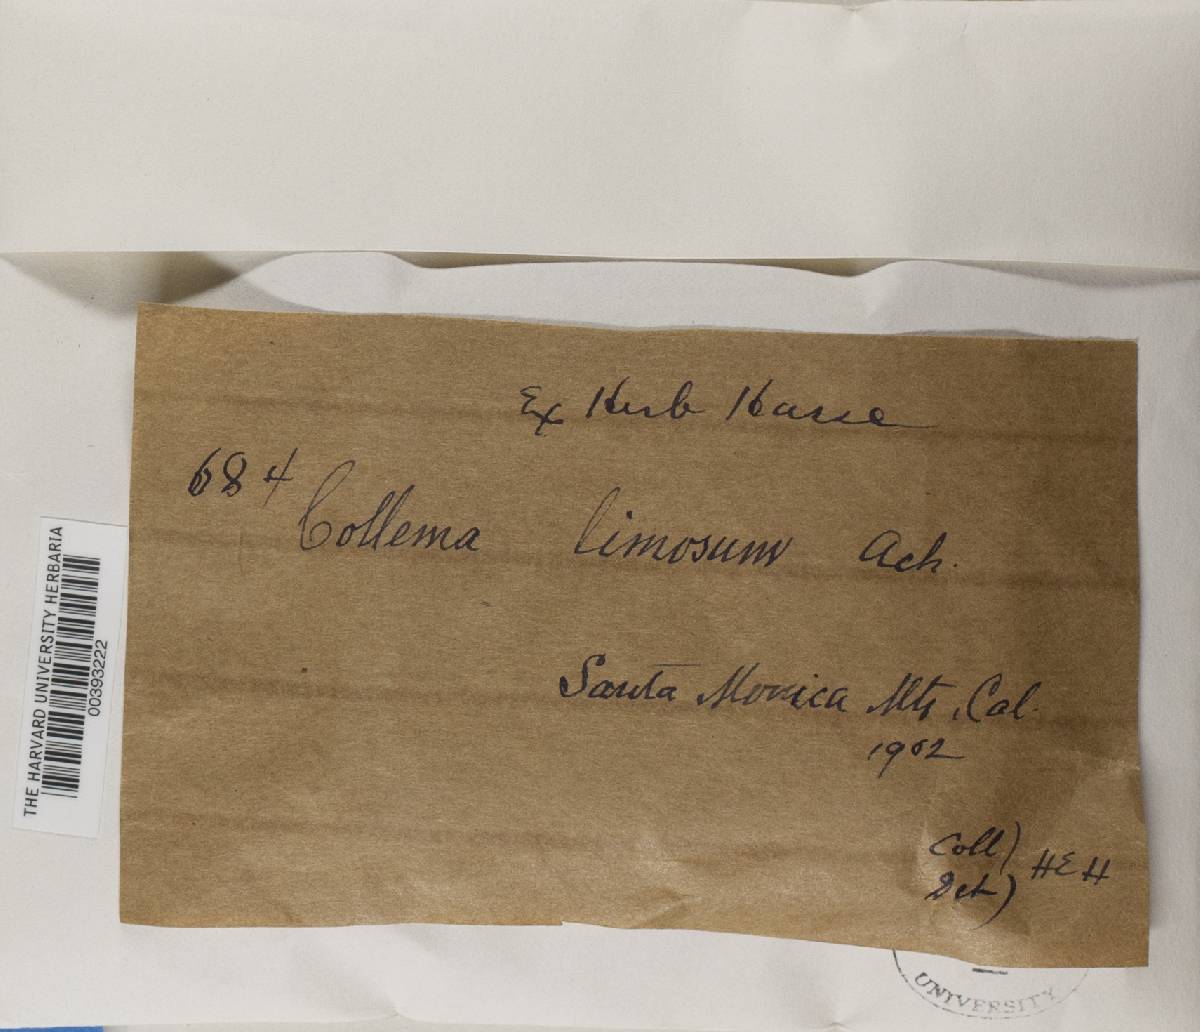 Ex Herb Hasse
684
Collema limosum Ach.
Santa Monica Mts, Cal.
1902
Coll)
Det) HEH
THE HARVARD UNIVERSITY HERBARIA
00393222
UNIVERSITY